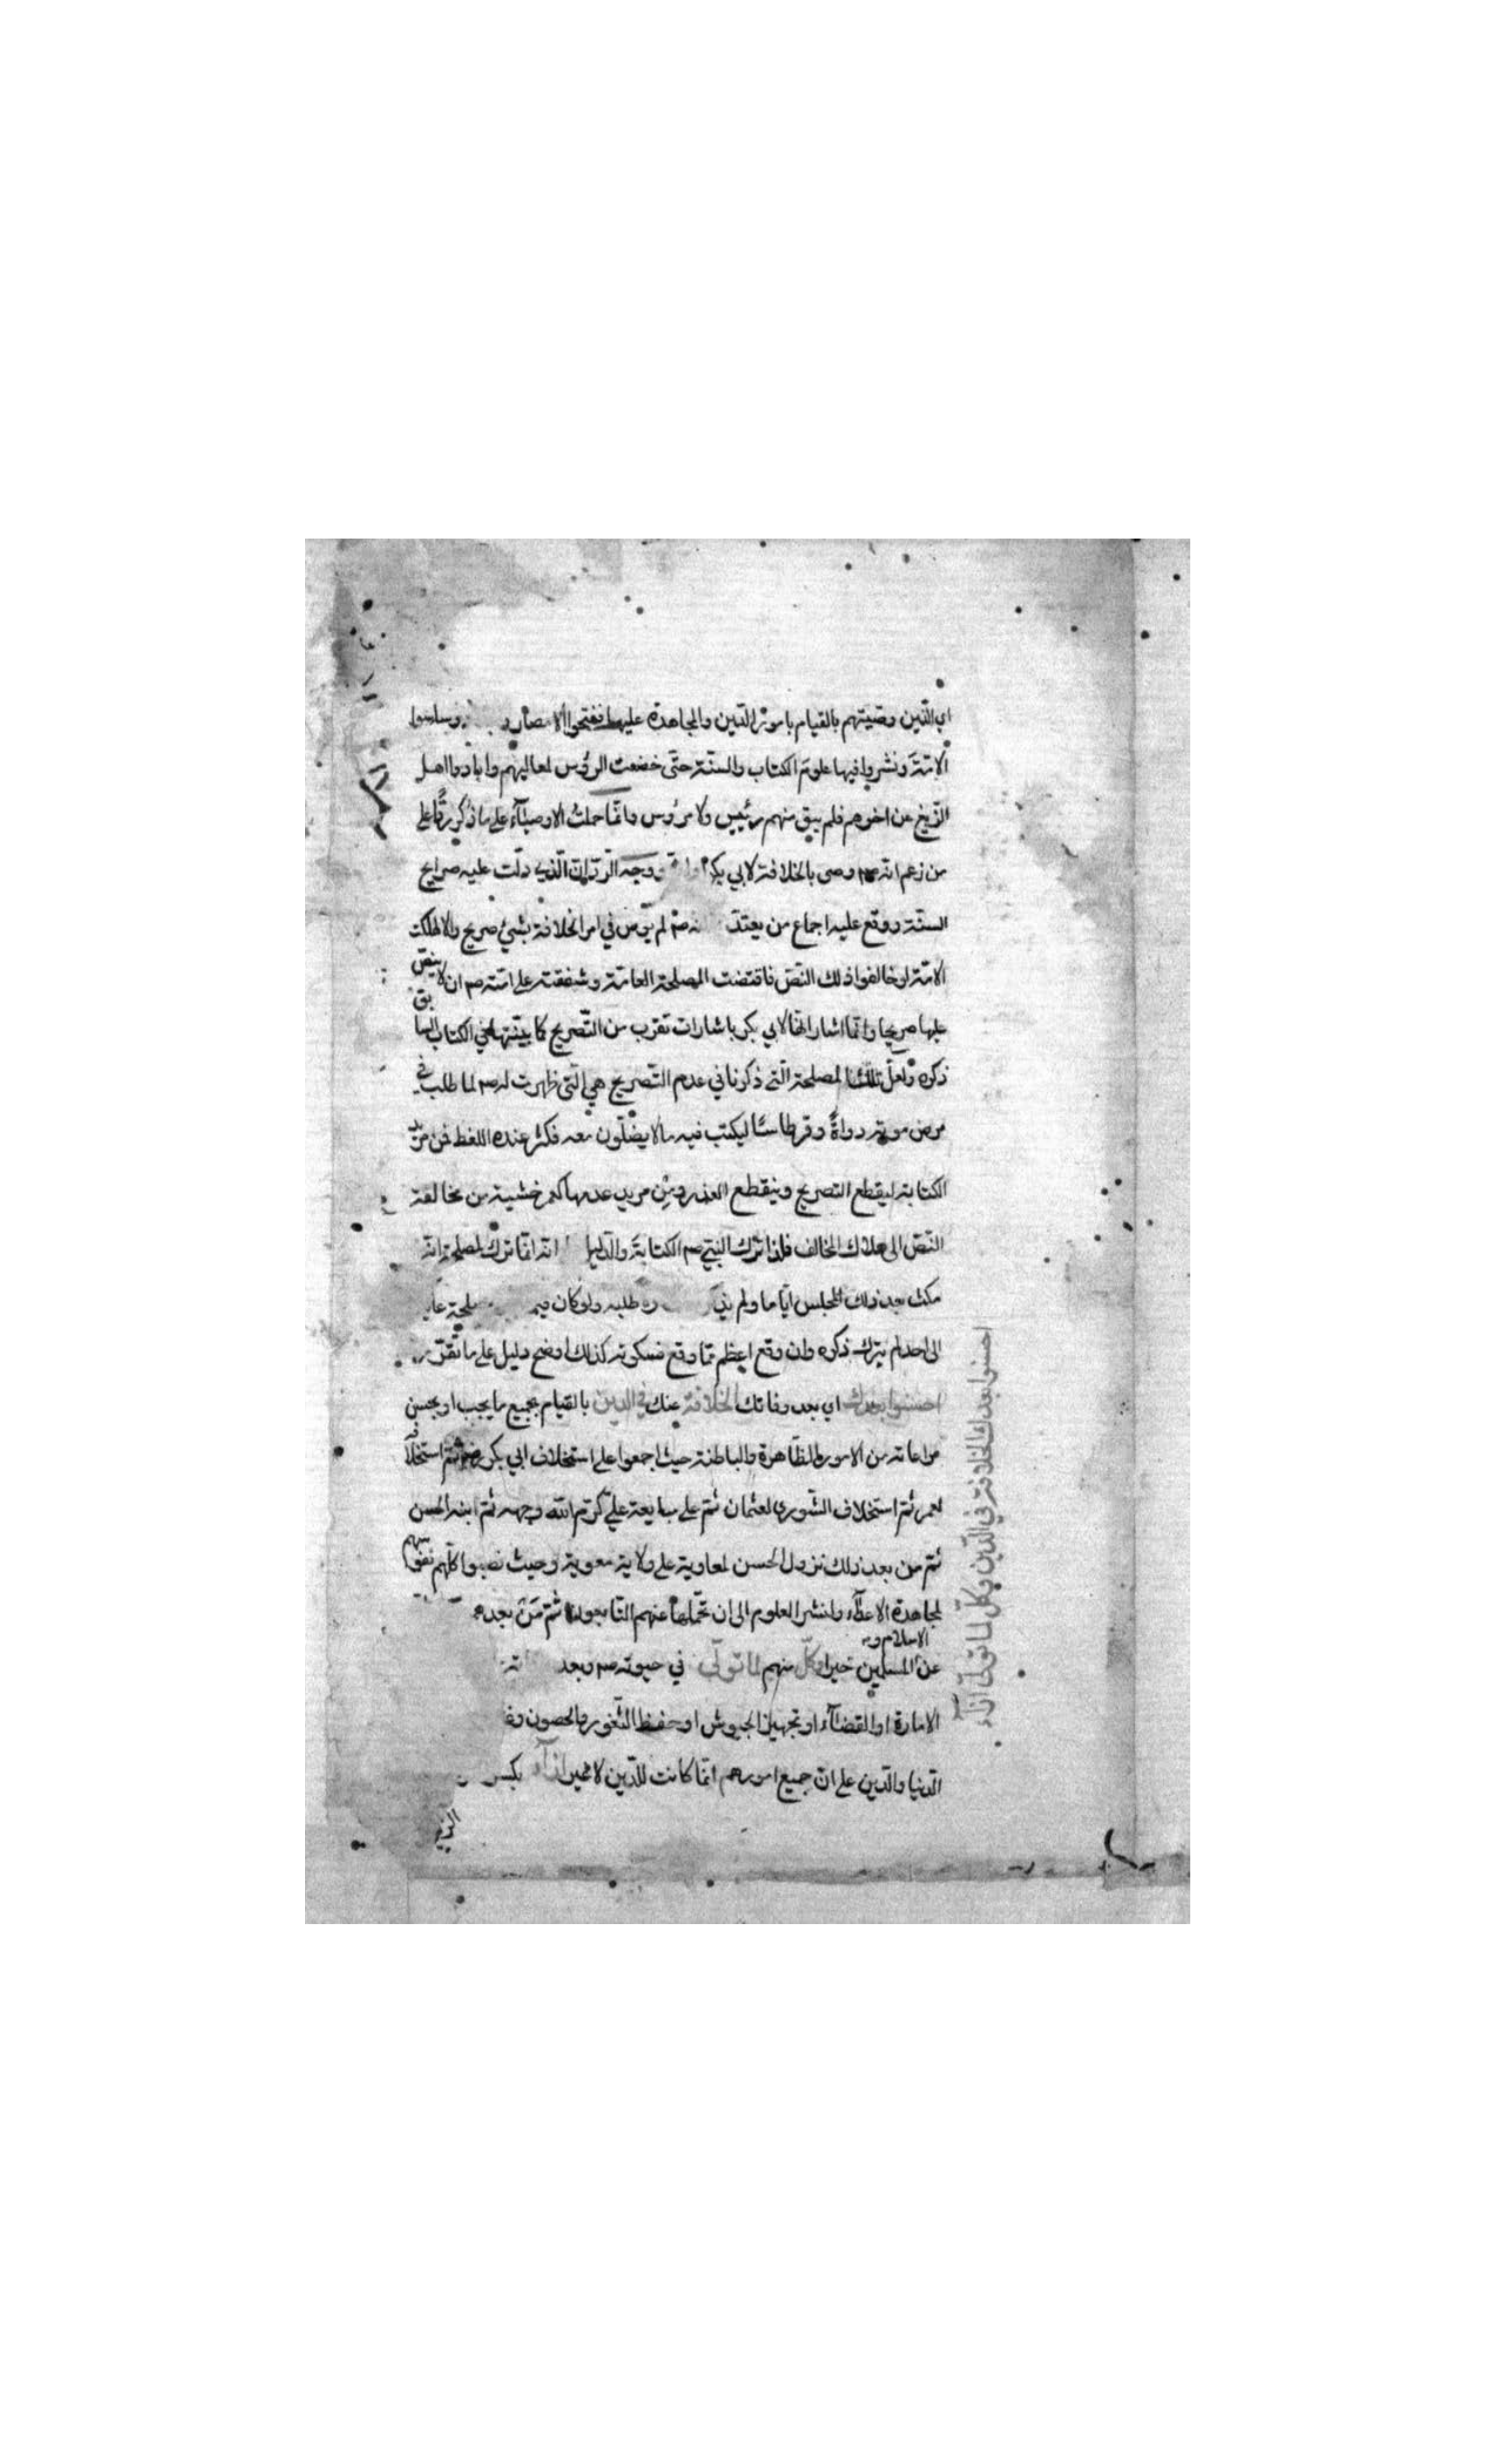 اي الذين وصيتهم بالقيام بامور الدين والمجاهدة عليها ففتحوا الامصار وساسوا
الامة ونشروا فيها علوم الكتاب والسنة حتى خضعت الرؤس لمعاليهم وابادوا اهل
الزيغ عن اخرهم فلم يبق منهم رئيس ولا مرؤس وانما حملت الاوصياء على ما ذكر ردا على
من زعم انه صم وصى بالخلافة لابي بكر ووجه الرد ان الذي دلت عليه صرايح
السنة ووقع عليه اجماع من يعتد صم لم ينص في امر الخلافة بشئ صريح والا لهلكت
الامة لو خالفوا ذلك النص فاقتضت المصلحة العامة وشفقته على امته صم ان لا ينص
عليها صريحا وانما اشار اليها لابي بكر باشارات تقرب من التصريح كما بينتها في الكتاب السابق
ذكره ولعل تلك المصلحة التي ذكرنا في عدم التصريح هي التي ظهرت له صم لما طلب في
مرض موته دواة وقرطاسا ليكتب فيه ما لا يضلون معه فكثر عنده اللغط فمن مريد
الكتابة ليقطع التصريح وينقطع العذر ومن مريد عدمها كعمر خشية من مخالفة
النص الى هلاك المخالف فلذا ترك النبي صم الكتابة والدليل انه انما ترك لمصلحة انه
مكث بعد ذلك المجلس اياما ولم طلبه ولو كان فيه
الى احد لم يترك ذكره وان وقع اعظم مما وقع فسكوته كذلك اوضح دليل على ما تقرر
احسنوا بعدك اي بعد وفاتك الخلافة عنك في الدين بالقيام بجميع ما يجب او يحسن
مراعاته من الامور الظاهرة والباطنة حيث اجمعوا على استخلاف ابي بكر رضه ثم استخلافه
لعمر ثم استخلاف الشورى لعثمان ثم على مبايعة علي كرم الله وجهه ثم ابنه الحسن
ثم من بعد ذلك نزول الحسن لمعاوية على ولاية معوية وحيث نصبوا كلهم نفوسهم
لمجاهدة الاعداء وانشر العلوم الى ان تحملها عنهم التابعون ثم من بعدهم
الاسلام و
عن المسلمين خيرا وكل منهم لما تولى في حيوته صم وبعد
الامارة او القضاء او تجهيز الجيوش او حفظ الثغور والحصون
الدنيا والدين على ان جميع امورهم انما كانت للدين لا غير ازاء بكسر
احسنوا بعدك الخلافة في الدين وكل لما تولى ازاء